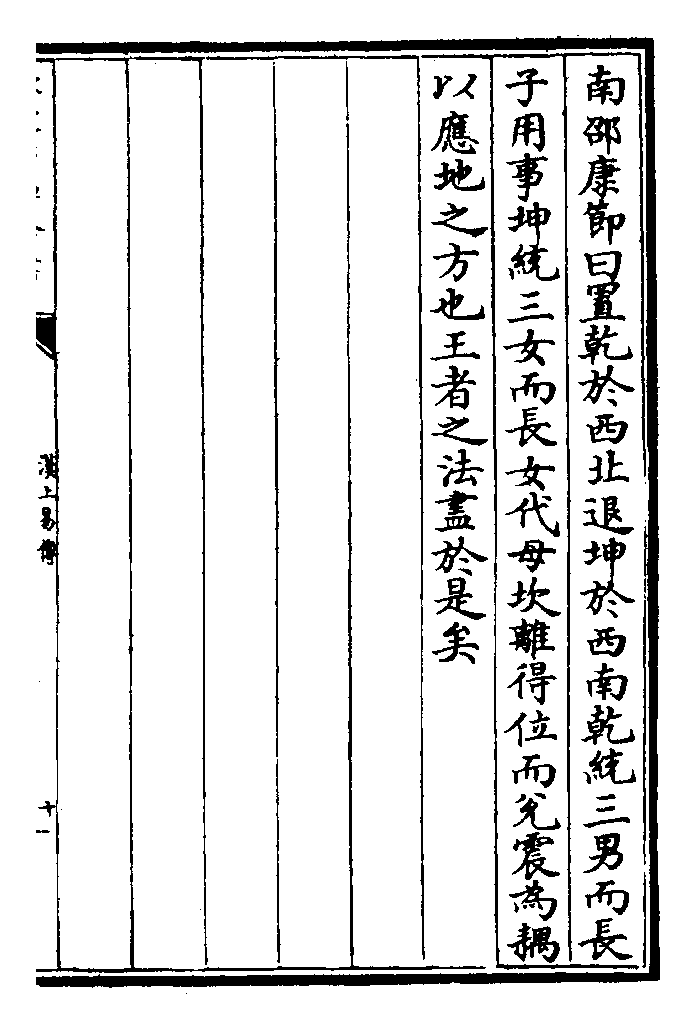 南邵康節曰置乾於西北退坤於西南乾統三男而長
子用事坤統三女而長女代母坎離得位而兊震為耦
以應地之方也王者之法盡於是矣
漢上易傳
十一